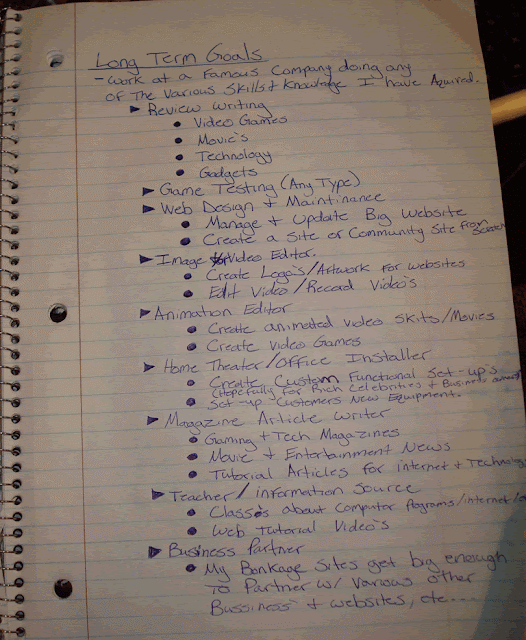 Long Term Goals
- Work at a Famous Company doing any
of The Various Skills & Knowledge I have Aquired.
► Review writing
• Video Games
• Movie's
• Technology
• Gadgets
► Game Testing (Any Type)
► Web Design & Maintinance
• Manage & Update Big Website
• Create a Site or Community Site From Scratch
► Image Video Editor.
• Create Logo's/Artwork For websites
• Edit Video / Record Video's
► Animation Editor
• Create animated video skits/Movies
• Create Video Games
► Home Theater/Office Installer
• Create Custom Functional Set-up's
(Hopefully for Rich Celebrities & Business
• Set-up Customers New Equipment.
► Magazine Article Writer
• Gaming & Tech Magazines
• Movie & Entertainment News
• Tutorial Articles For internet & Technology
► Teacher / information Source
• Classes about Computer Programs/internet/
• Web Tutorial Video's
► Business Partner
• My Bonkage Sites get big enough
To Partner w/ Various other
Bussiness & websites, etc....